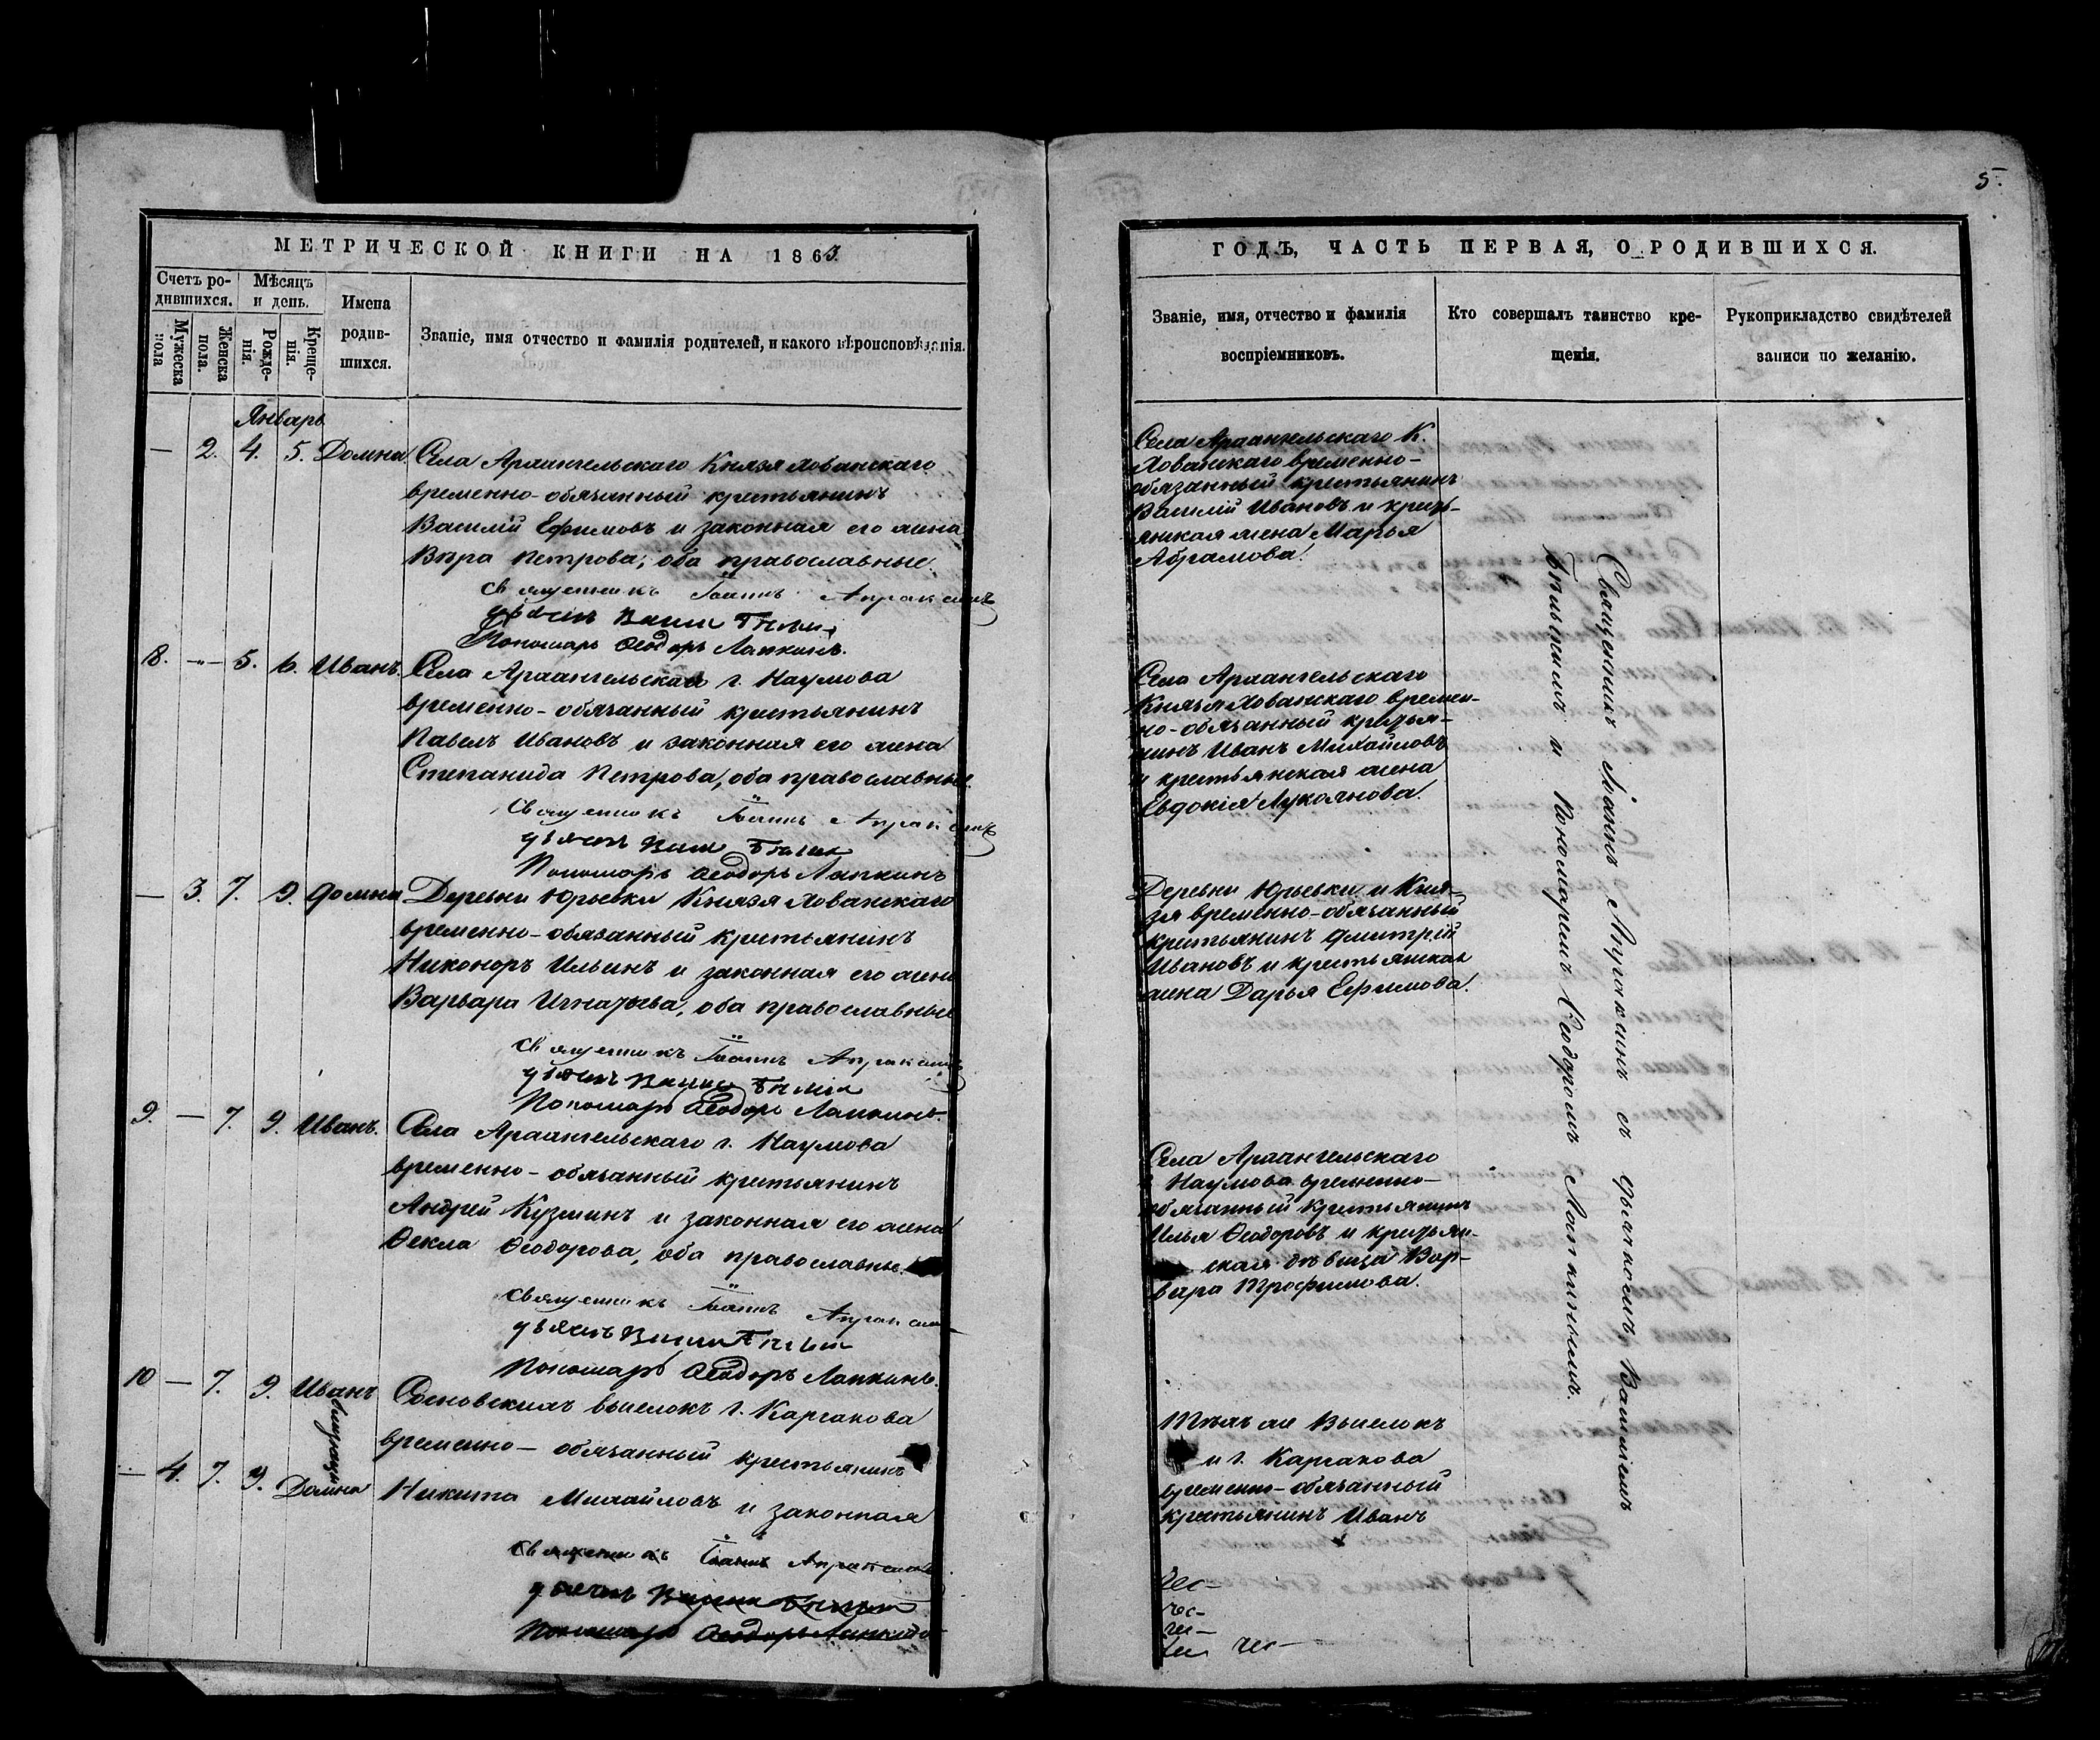 МЕТРИЧЕСКОЙ КНИГИ НА 1863.
Счетъ ро-
дившихся.
Мужеска
пола
Женска
пола.
Мѣсяцъ
и день.
Рожде-
нія.
Креще-
нія.
Имена
родив-
шихся.
Званіе, имя отчество и фамилія родителей, и какого вѣроисповѣданія.
Январь
— 2. 4. 5. Домна. Села Архангельскаго Князя Хованскаго
временно-обязанный крестьянинъ
Василій Ефимовъ и законная его жена
Вѣра Петрова, оба православные.
Священникъ Іоаннъ Апраксинъ
Пономарь Ѳеодоръ Лапкинъ.
8. — 5. 6. Иванъ. Села Архангельскаго г. Наумова
временно-обязанный крестьянинъ
Павелъ Ивановъ и законная его жена
Степанида Петрова, оба православные.
Священникъ Іоаннъ Апраксинъ
Пономарь Ѳеодоръ Лапкинъ
— 3. 7. 9. Домна Деревни Юрьевки Князя Хованскаго
временно-обязанный крестьянинъ
Никоноръ Ильинъ и законная его жена
Варвара Игнатьева, оба православные
Священникъ Іоаннъ Апраксинъ
Пономарь Ѳеодоръ Лапкинъ.
9. — 7. 9. Иванъ. Села Архангельскаго г. Наумова
временно-обязанный крестьянинъ
Андрей Кузминъ и законная его жена
Ѳекла Ѳеодорова, оба православные.
Священникъ Іоаннъ Апраксинъ
Пономарь Ѳеодоръ Лапкинъ.
10 — 7. 9. Иванъ Сосновскихъ выселокъ г. Каргакова
временно-обязанный крестьянинъ
— 4. 7. 9. Домна Никита Михайловъ и законная
Священникъ Іоаннъ Апраксинъ
Пономарь Ѳеодоръ Лапкинъ
5.
ГОДЪ, ЧАСТЬ ПЕРВАЯ, О РОДИВШИХСЯ.
Званіе, имя, отчество и фамилія
воспріемниковъ.
Кто совершалъ таинство кре-
щенія.
Рукоприкладство свидѣтелей
записи по желанію.
Села Архангельскаго К.
Хованскаго временно-
обязанный крестьянинъ
Василій Ивановъ и кресть-
янская жена Марья
Абрамова.
Села Архангельскаго
Князя Хованскаго времен-
но-обязанный крестья-
нинъ Иванъ Михайловъ
и крестьянская жена
Евдокія Лукоянова.
Деревни Юрьевки и Кня-
зя временно-обязанный
крестьянинъ Дмитрій
Ивановъ и крестьянская
жена Дарья Ефимова.
Села Архангельскаго
Наумова временно-
обязанный крестьянинъ
Илья Ѳеодоровъ и крестьян-
ская дѣвица Вар-
вара Трофимова.
Тѣхъ же Выселокъ
и г. Каргакова
временно-обязанный
крестьянинъ Иванъ
Священникъ Іоаннъ Апраксинъ съ дьячкомъ Василіемъ
и Пономаремъ Ѳеодоромъ Лапкинымъ.